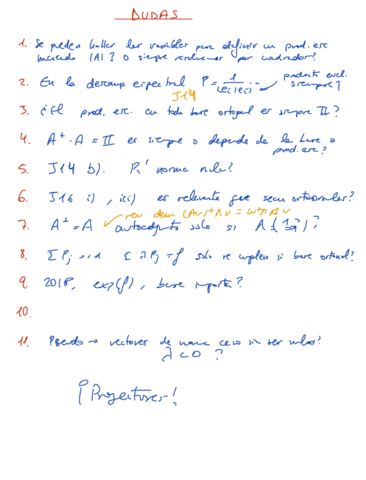 DUDAS
1. Se pueden hallar las variables para definir un prod. esc
haciendo |A|? O siempre por cuadrados?
2. En la descomp espectral P = 1 / ⟨e_i|e_i⟩ ... producto escal.
siempre?
J14
3. ¿El prod. esc. en toda base ortogonal es siempre II?
4. A⁺·A = II es siempre o depende de la base o
prod. esc?
5. J14 b). P_i' norma nula?
6. J16 i), iii) es relevante que sean ortonormales?
ver dem (Av)⁺Av = w⁺Av
7. A⁺ = A autoadjunto solo si A {1ai}?
8. Σ P_j = 1 Σ λP_j = f solo se cumplen si base ortonal?
9. 2018, exp(f), base importa?
10.
11. Pseudo → vectores de norma cero sin ser nulos?
λ < 0 ?
¡Proyectores!